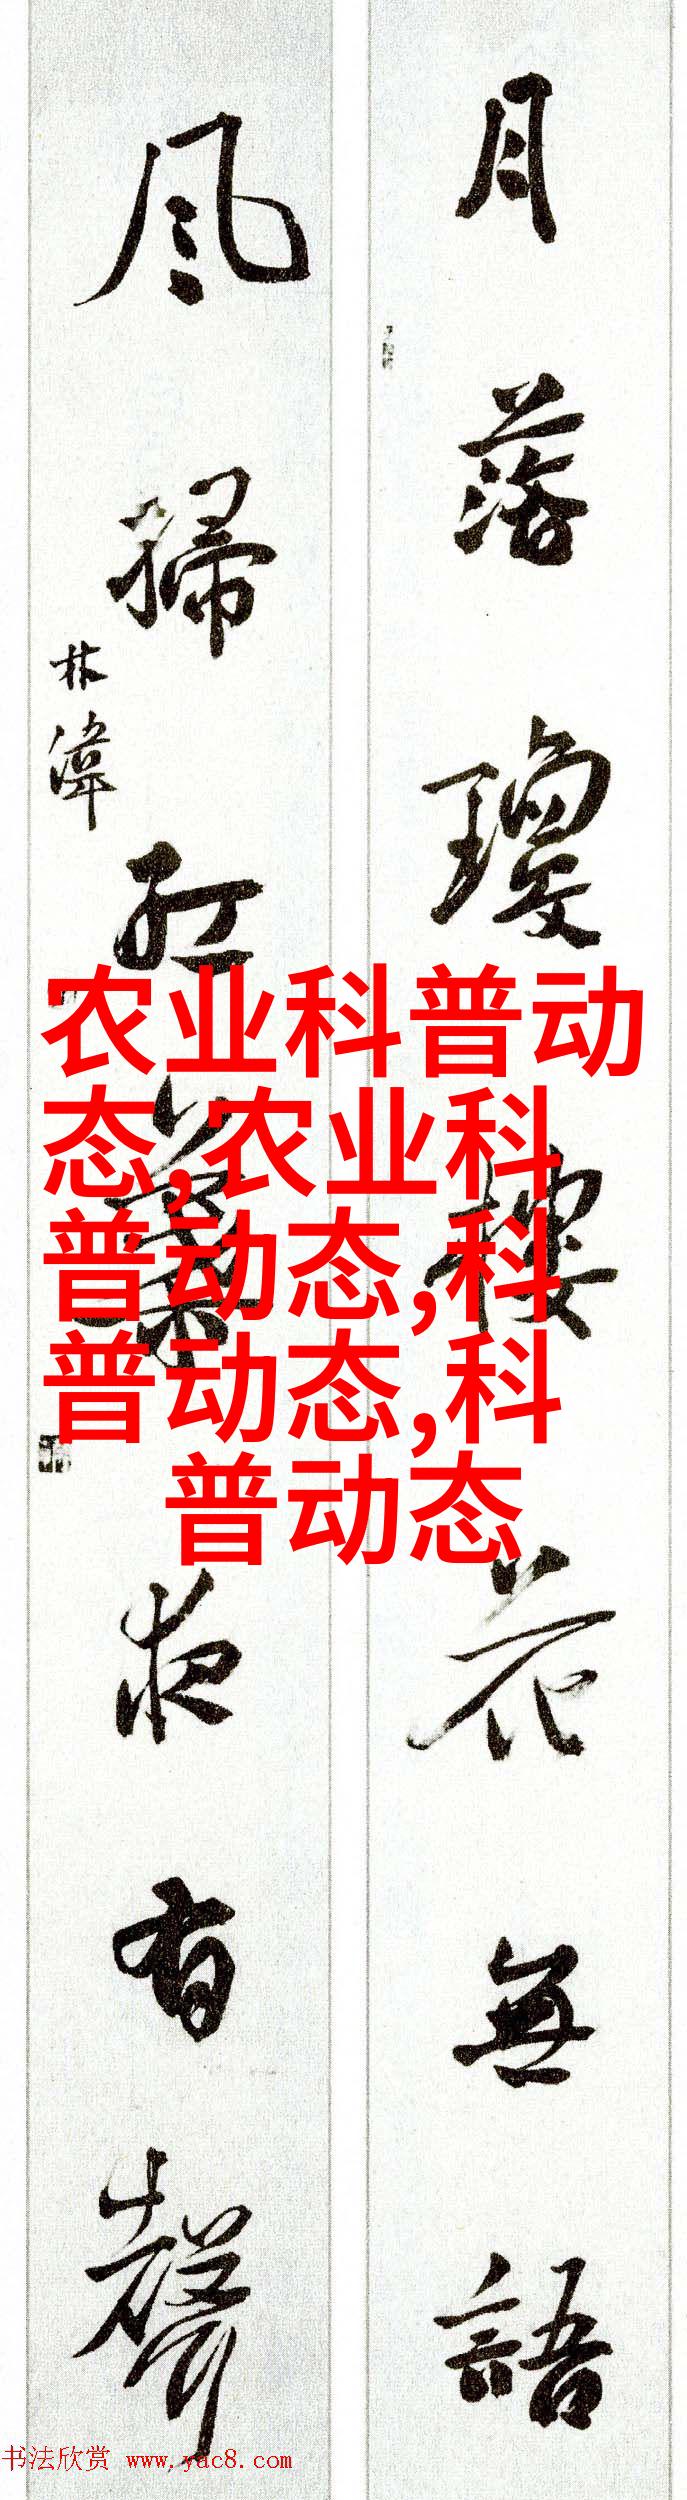 月落瓊樓花無語
風掃紅葉夜有聲
林偉
农业科普动
态,农业科
普动态,科
普动态,科
普动态
书法欣赏 www.yac8.com